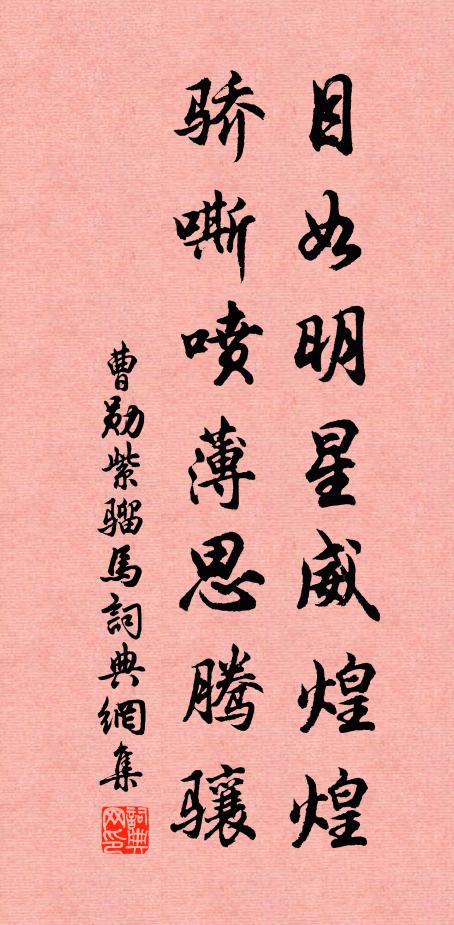 目如明星威煌煌
骄嘶喷薄思腾骧
曹勋紫骝馬詞典網集
詞典网印